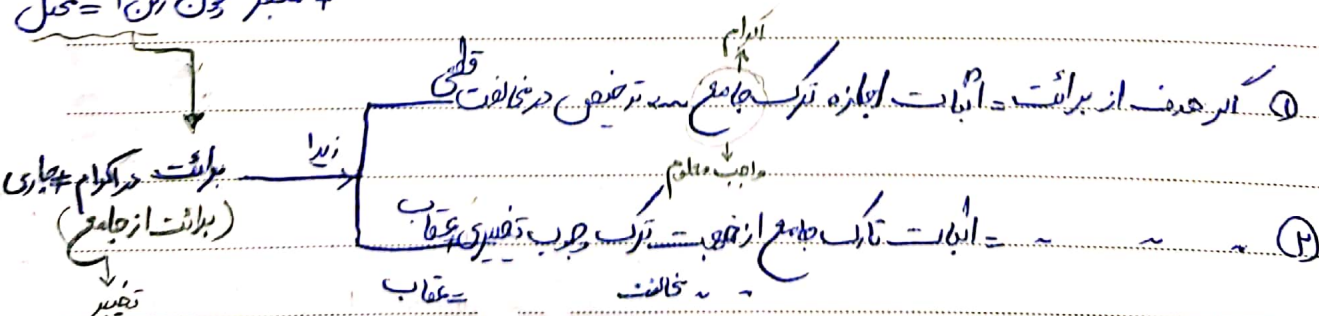 اکرام
① اگر هدف از برائت = اثبات اجازه ترک جامع ← ترخیص در مخالفت قطعی
واجب معلوم
زیرا
برائت در اکرام ≠ جاری
(برائت از جامع)
تخییر
② " " " = اثبات تارک جامع از جهت ترک وجوب تخییری عقاب
" " مخالفت = عقاب